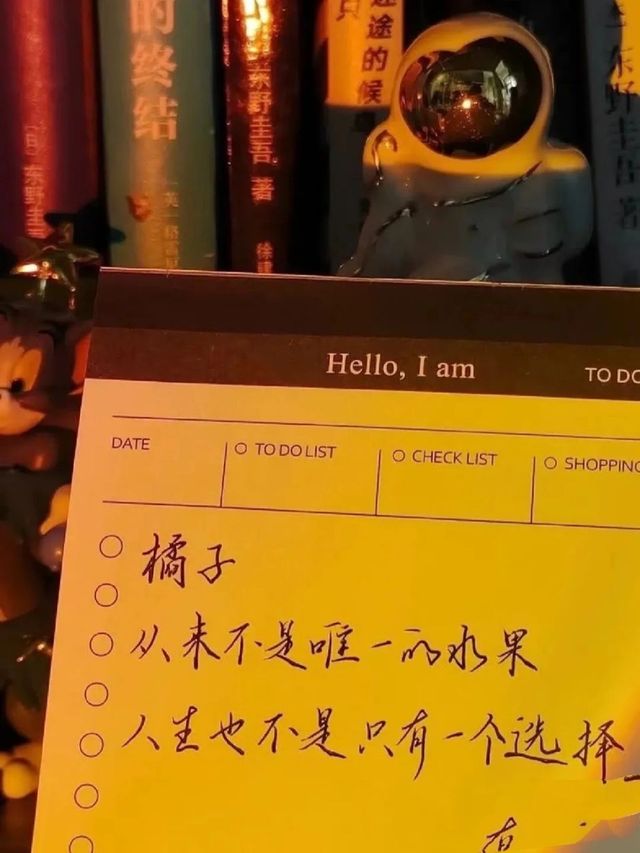 的终结
[英]
[日]东野圭吾
东野圭吾 著
途的候
东野圭吾 著
Hello, I am
TO DO
DATE
TO DO LIST
CHECK LIST
SHOPPING
橘子
从来不是唯一的水果
人生也不是只有一个选择
有